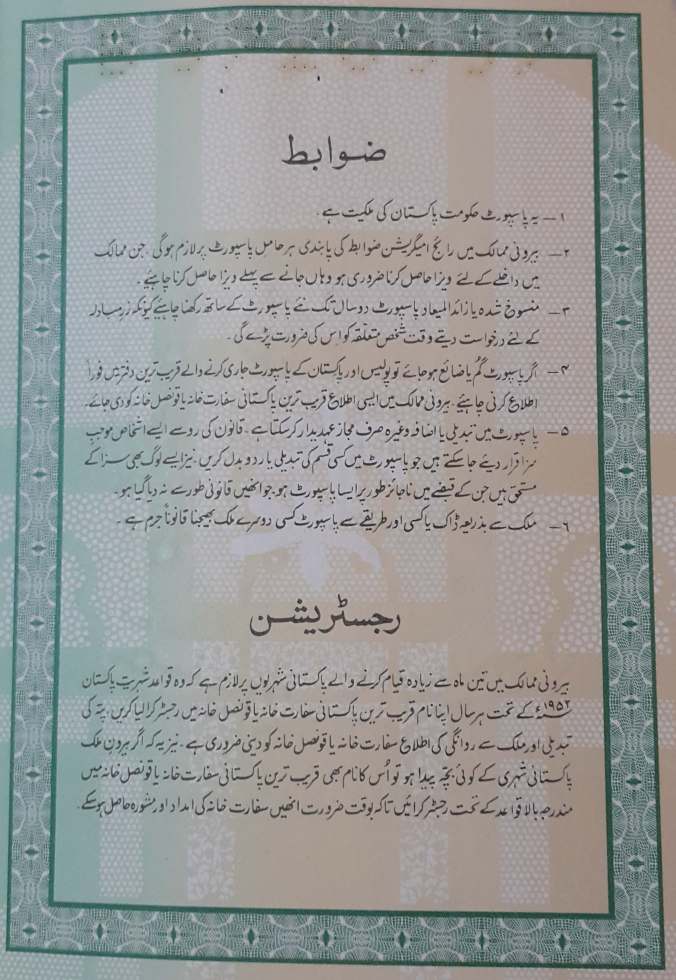 ضوابط
۱ — یہ پاسپورٹ حکومت پاکستان کی ملکیت ہے۔
۲ — بیرونی ممالک میں رائج امیگریشن ضوابط کی پابندی ہر حامل پاسپورٹ پر لازم ہوگی۔ جن ممالک
میں داخلے کے لئے ویزا حاصل کرنا ضروری ہو وہاں جانے سے پہلے ویزا حاصل کرنا چاہئیے۔
۳ — منسوخ شدہ یا زائد المیعاد پاسپورٹ دو سال تک نئے پاسپورٹ کے ساتھ رکھنا چاہئیے کیونکہ زرمبادلہ
کے لئے درخواست دیتے وقت شخص متعلقہ کو اس کی ضرورت پڑے گی۔
۴ — اگر پاسپورٹ گم یا ضائع ہو جائے تو پولیس اور پاکستان کے پاسپورٹ جاری کرنے والے قریب ترین دفتر میں فوراً
اطلاع کرنی چاہئیے۔ بیرونی ممالک میں ایسی اطلاع قریب ترین پاکستانی سفارت خانہ یا قونصل خانہ کو دی جائے۔
۵ — پاسپورٹ میں تبدیلی یا اضافہ وغیرہ صرف مجاز عہدیدار کر سکتا ہے۔ قانون کی رو سے ایسے اشخاص موجب
سزا قرار دیئے جا سکتے ہیں جو پاسپورٹ میں کسی قسم کی تبدیلی یا رد و بدل کریں۔ نیز ایسے لوگ بھی سزا کے
مستحق ہیں جن کے قبضے میں ناجائز طور پر ایسا پاسپورٹ ہو جو انھیں قانونی طور سے نہ دیا گیا ہو۔
۶ — ملک سے بذریعہ ڈاک یا کسی اور طریقے سے پاسپورٹ کسی دوسرے ملک بھیجنا قانوناً جرم ہے۔
رجسٹریشن
بیرونی ممالک میں تین ماہ سے زیادہ قیام کرنے والے پاکستانی شہریوں پر لازم ہے کہ وہ قواعد شہریت پاکستان
۱۹۵۲ء کے تحت ہر سال اپنا نام قریب ترین پاکستانی سفارت خانہ یا قونصل خانہ میں رجسٹر کرا لیا کریں۔ پتہ کی
تبدیلی اور ملک سے روانگی کی اطلاع سفارت خانہ یا قونصل خانہ کو دینی ضروری ہے۔ نیز یہ کہ اگر بیرون ملک
پاکستانی شہری کے کوئی بچّہ پیدا ہو تو اُس کا نام بھی قریب ترین پاکستانی سفارت خانہ یا قونصل خانہ میں
مندرجہ بالا قواعد کے تحت رجسٹر کرائیں تاکہ بوقت ضرورت انھیں سفارت خانہ کی امداد اور مشورہ حاصل ہو سکے۔